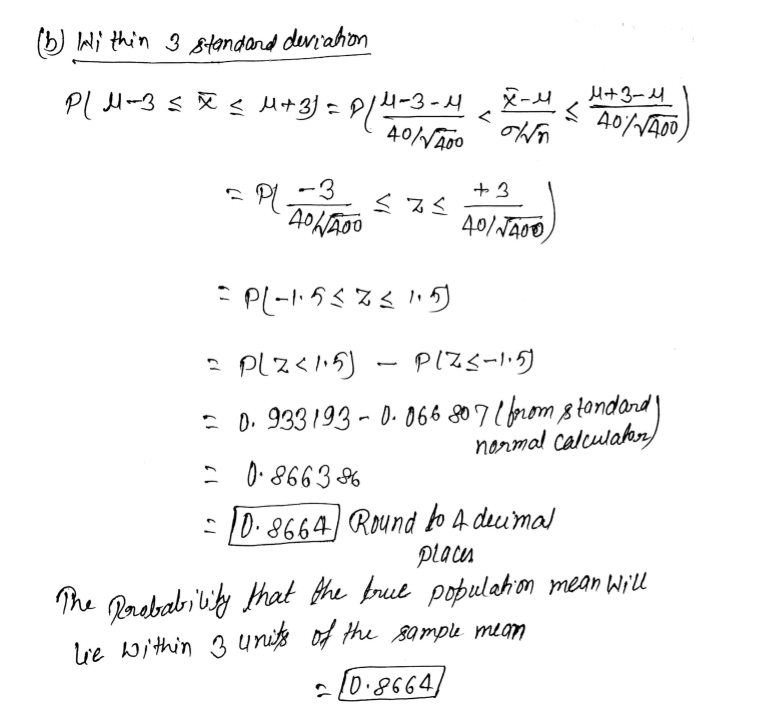 (b) Within 3 standard deviation
P( μ-3 ≤ x̄ ≤ μ+3) = P( (μ-3-μ)/(40/√400) < (x̄-μ)/(σ/√n) ≤ (μ+3-μ)/(40/√400) )
= P( -3/(40/√400) ≤ Z ≤ +3/(40/√400) )
= P(-1.5 ≤ Z ≤ 1.5)
= P(Z < 1.5) - P(Z ≤ -1.5)
= 0.933193 - 0.066807 (from standard
normal calculator)
= 0.866386
= 0.8664 Round to 4 decimal
places
The Probability that the true population mean will
lie within 3 units of the sample mean
= 0.8664